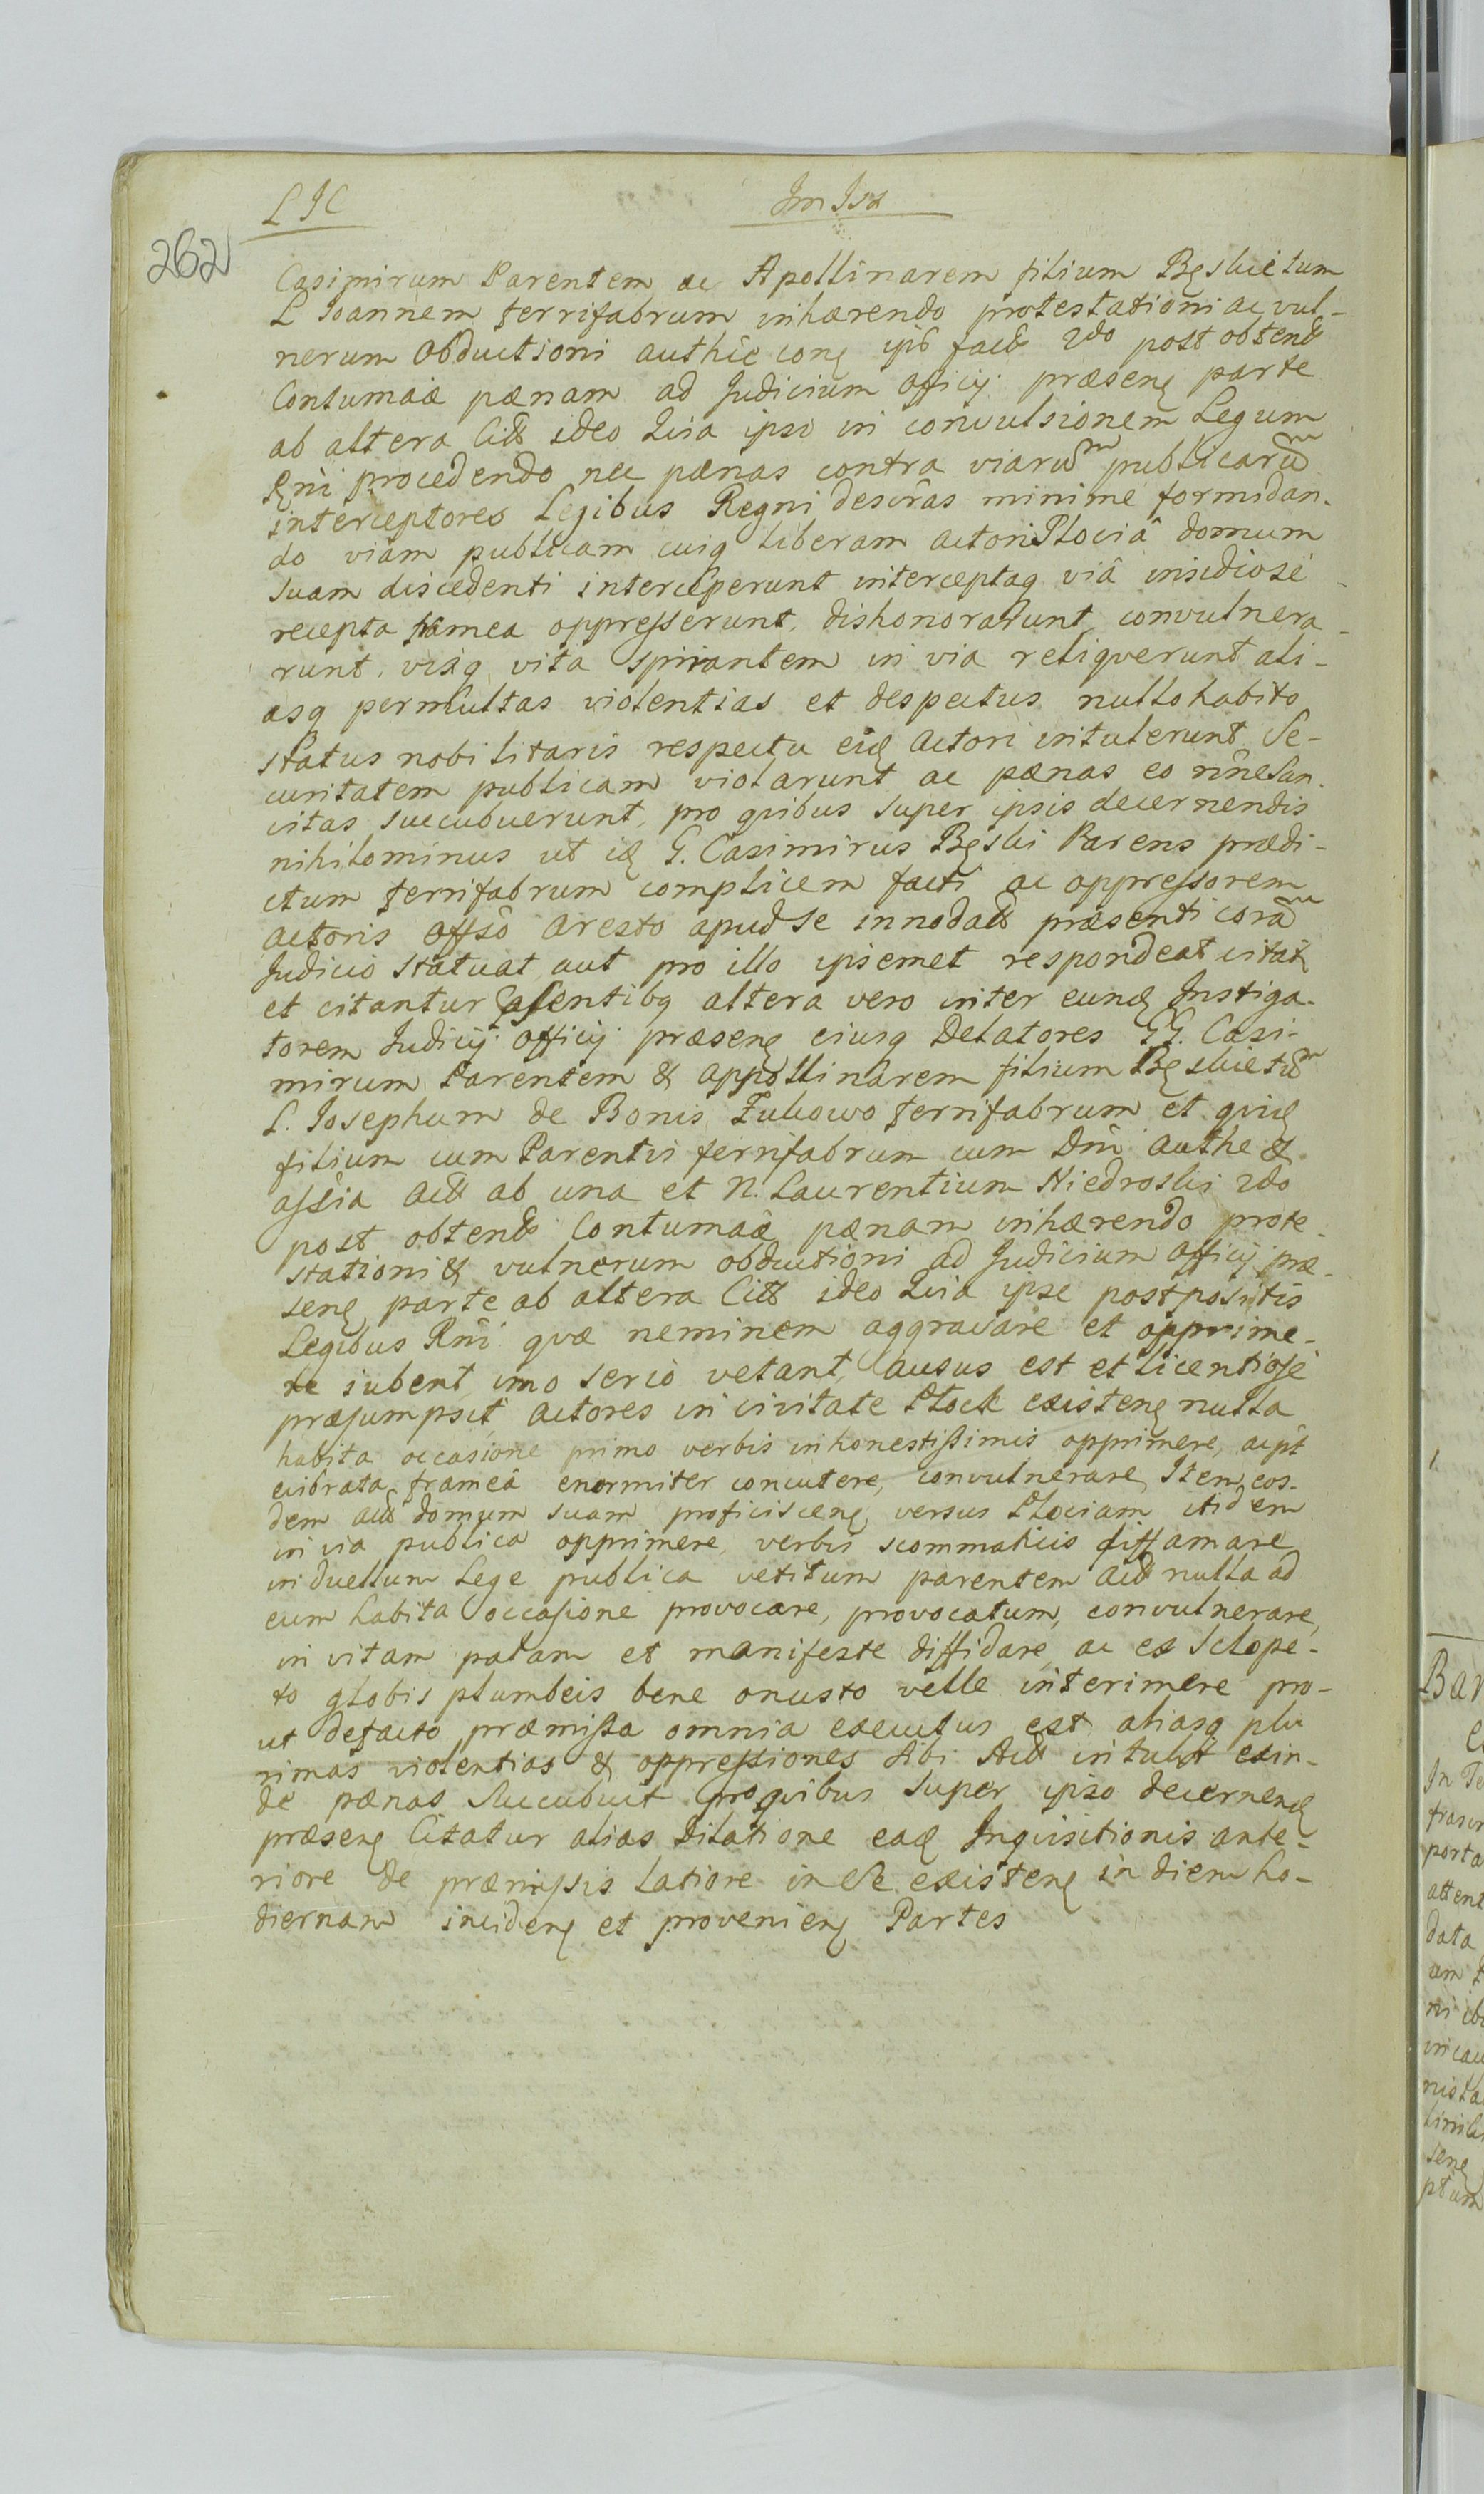 L J C
262
Casimirum Parentem ac Apollinarem filium Bęskietum
L Joannem ferrifabrum inhærendo protestationi ac vul-
nerum obductioni authĉe conę ipŏ fact 2do post obtent
Contumaciæ pænam ad Judicium officij præsenę parte
ab altera Citt ideo Quia ipsi in convulsionem Legum
Rni procedendo nec pænas contra viarum publicarum
interceptores Legibus Regni descrâs minime formidan-
do viam publicam cuiq liberam actori Plociâ domum
suam discedenti interceperunt interceptaq viâ insidiosé
recepta framea oppresserunt, dishonorarunt convulnera-
runt. vixq vita spirantem in via reliqverunt ali-
asq permultas violentias et despectus nullo habito
status nobilitaris respectu eidę actori intulerunt Se-
curitatem publicam violarunt ac pænas eo nîne San-
citas succubuerunt, pro qvibus super ipsis decernendis
nihilominus ut idę G. Casimirus Bęski Parens prædi-
ctum ferrifabrum complicem facti ac oppressorem
actoris offsô aresto apud se innodatt præsenti corâm
Judicio statuat aut pro illo ipsemet respondeat citatę
et citantur asentibq altera vero inter eundę Instiga-
torem Judicij officij præsenę eiusq Delatores GG. Casi-
mirum Parentem & appollinarem filium Bęskietum
L. Josephum de Bonis Zukowo ferrifabrum et qvidę
filium cum Parentis ferrifabrum cum Dni authe &
assîa Actt ab una et N. Laurentium Niedroski 2do
post obtent Contumaciæ pænam inhærendo prote-
stationi & vulnerum obductioni ad Judicium officij præ-
senę parte ab altera Citt ideo Quia ipse postpositis
Legibus Rni qvæ neminem aggravare et opprime-
re iubent imo serio vetant, ausus est et licentiosé
præsumpsit actores in civitate Plock existenę nulla
habita occasione primo verbis inhonestissimis opprimere, acpt
evibrata frameâ enormiter concutere, convulnerare, Item eos-
dem actt domum suam proficiscenę versus Plociam itidem
in via publica opprimere verbis scommaticis diffamare
in duellum Lege publica vetitum parentem Actt nulla ad
eum habita occasione provocare, provocatum, convulnerare,
in vitam palam et manifeste diffidare ac ex Sclope-
to globis plumbeis bene onusto velle interimere pro-
ut defacto præmissa omnia executus est aliasq plu
rimas violentias & oppressiones sibi Actt intulit exin-
de pænas Succubuit pro qvibus super ipso decernenę
præsenę Citatur alias Dilatione eadę Inqvisitionis ante-
riore de præmissis latiore in se existenę in diem ho-
diernam incidenę et provenienę Partes